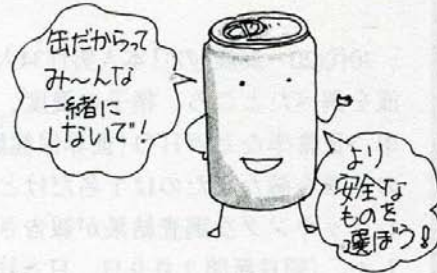 缶だからって
み〜んな
一緒に
しないで!
より
安全な
ものを
選ぼう!